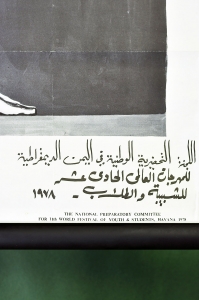 اللجنة التحضيرية الوطنية في اليمن الديمقراطية
للمهرجان العالمي الحادي عشر
للشبيبة والطلاب - ١٩٧٨
THE NATIONAL PREPARATORY COMMITTEE
FOR 11th WORLD FESTIVAL OF YOUTH & STUDENTS, HAVANA 1978